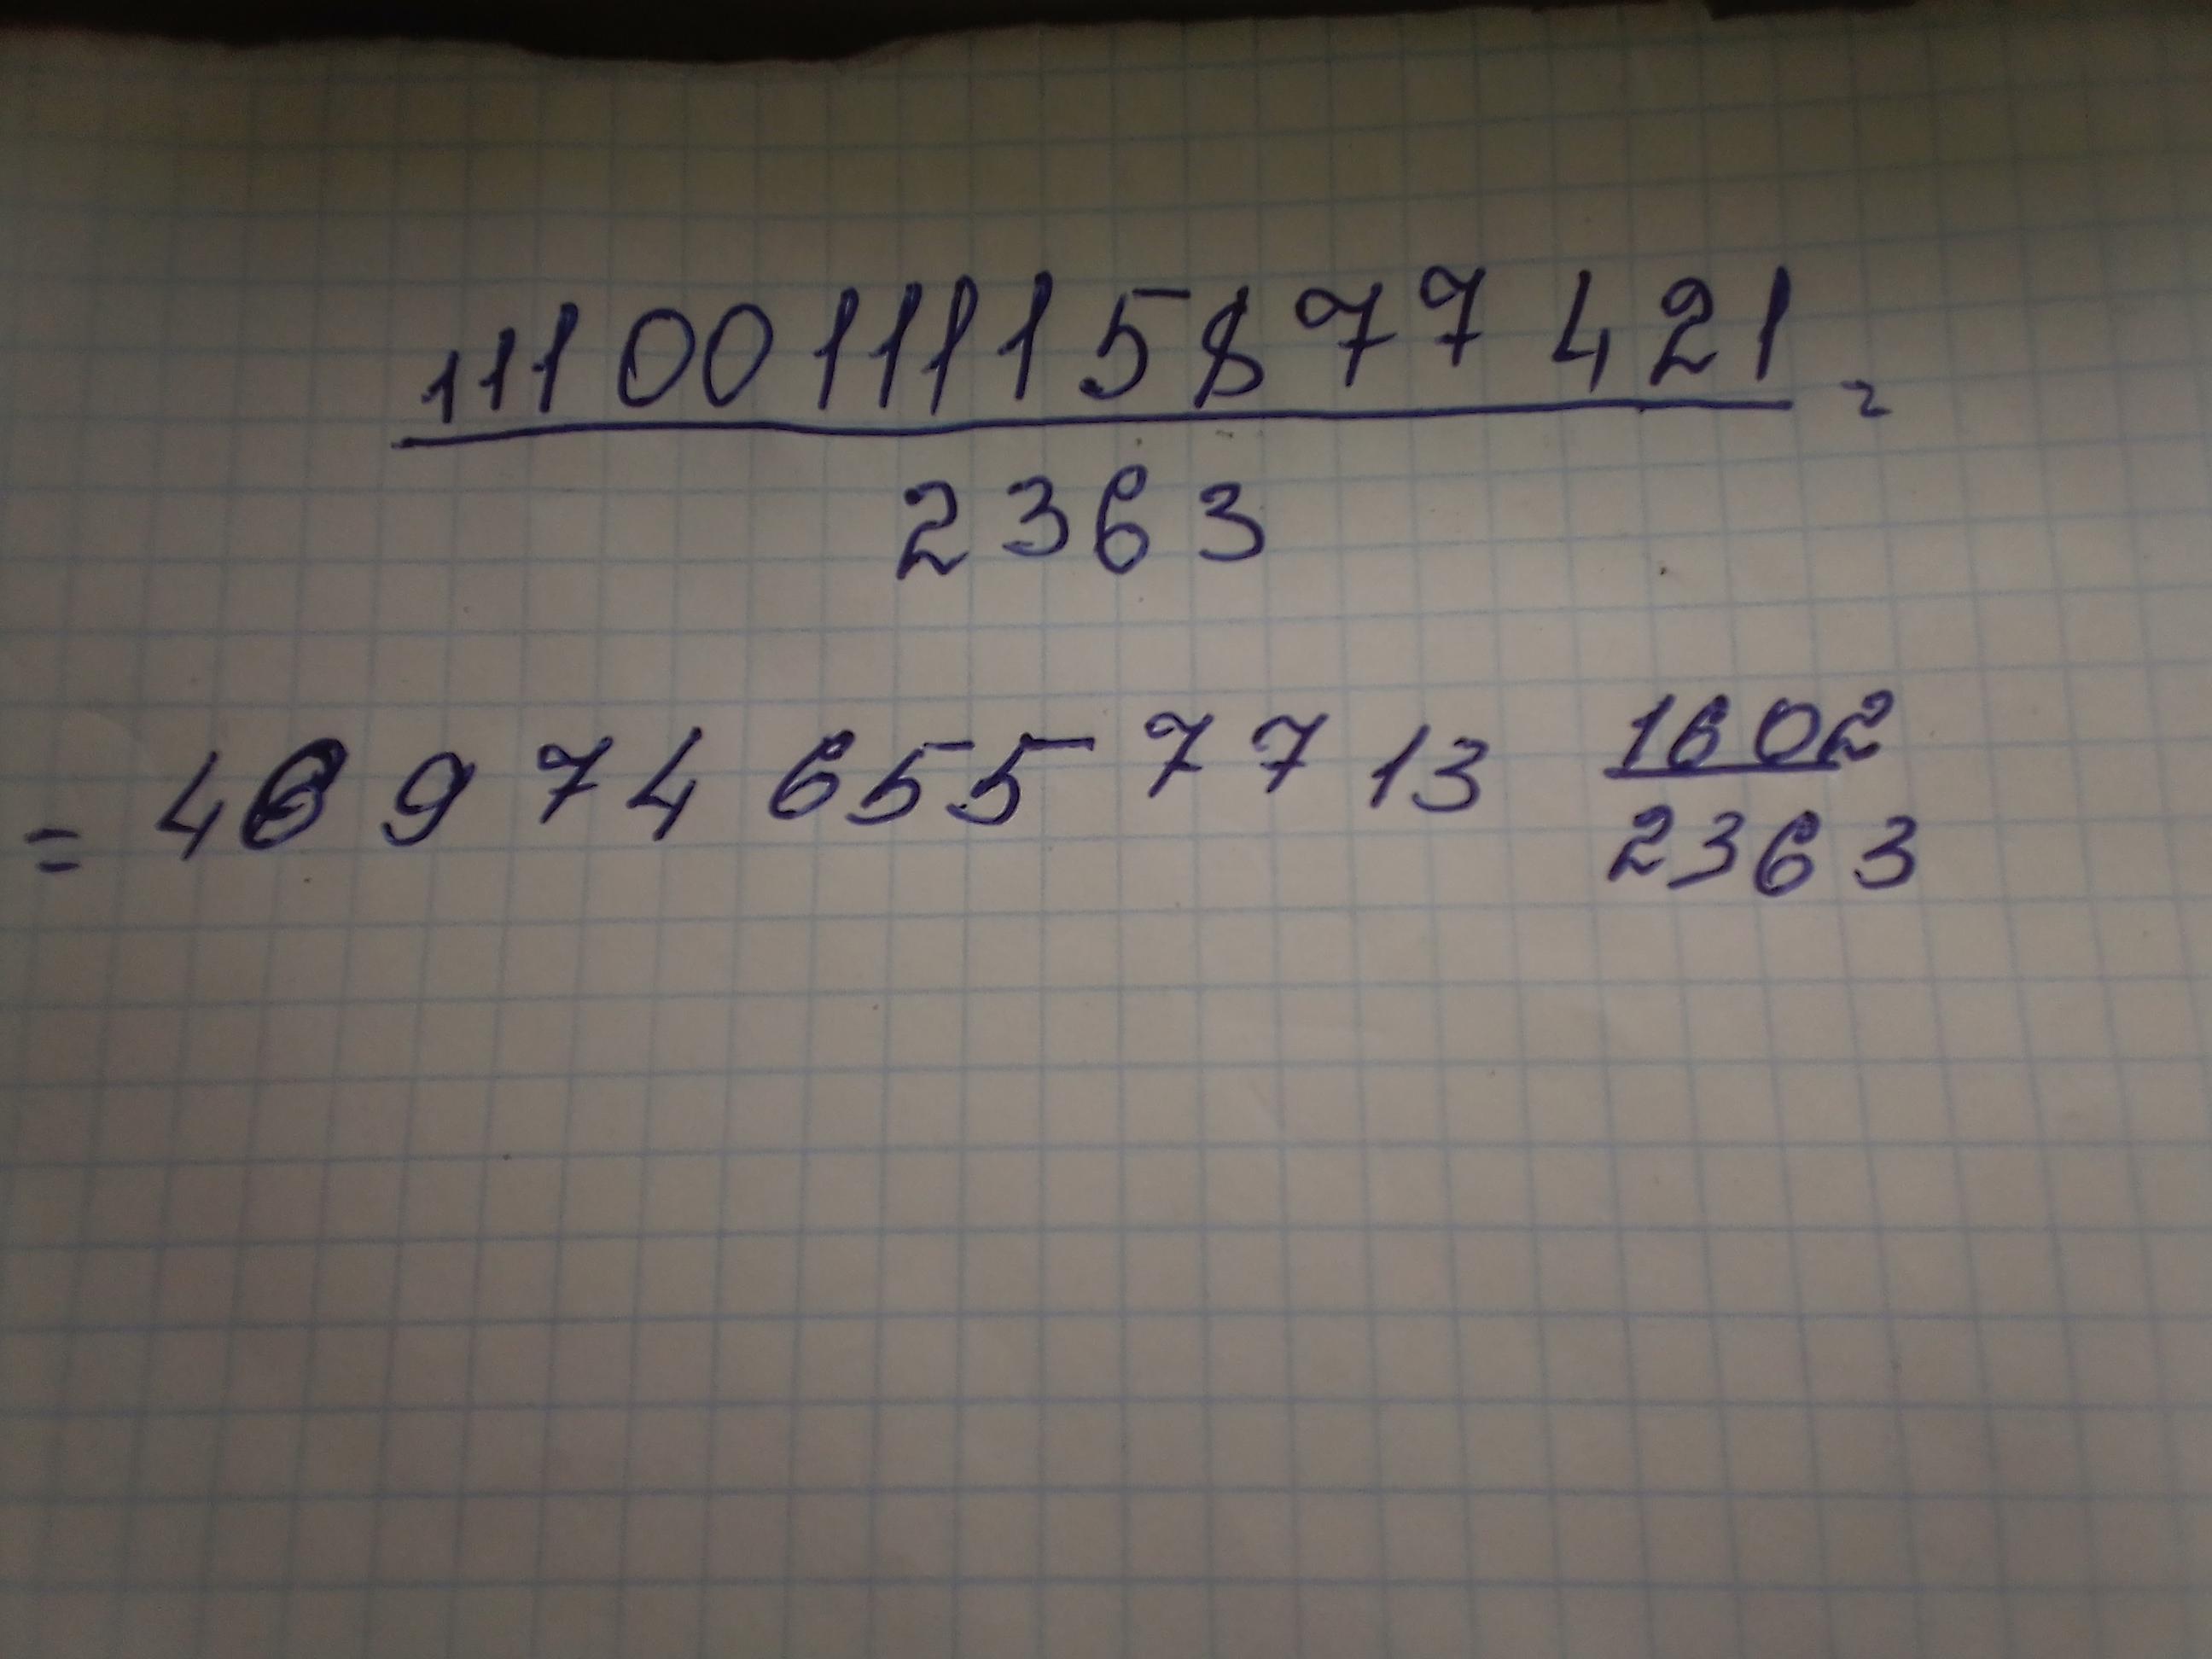 1110011115877421 =
2363
= 469746557713 1602
2363